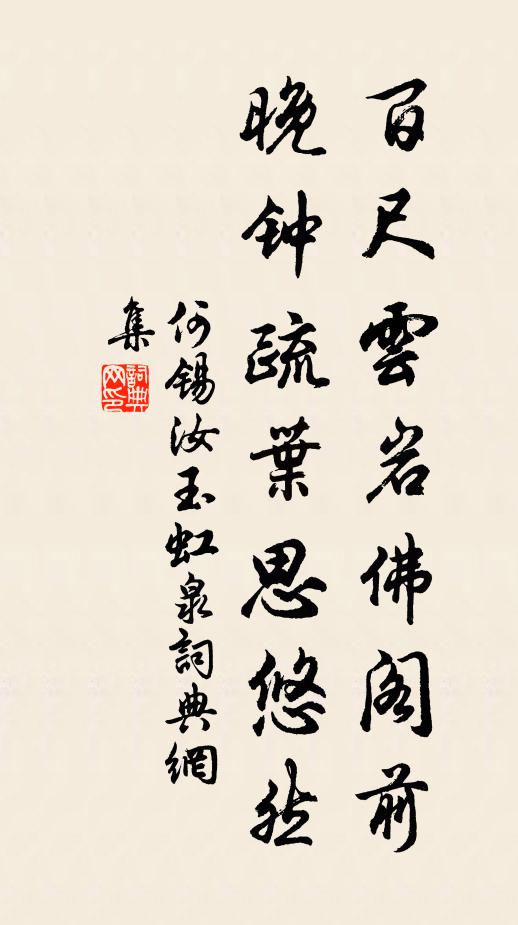 百尺雲岩佛阁前
晚钟疏葉思悠然
何锡汝玉虹泉詞典網
集
詞典网印